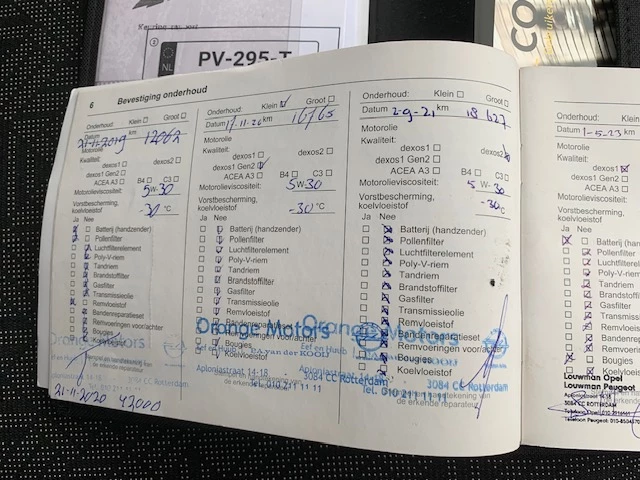 NL
PV-295-T
6 Bevestiging onderhoud
Onderhoud: Klein Groot
21-11-2019 km 12062
Kwaliteit:
dexos1 dexos2
dexos1 Gen2
ACEA A3 B4 C3
Motorolieviscositeit:
5W-30
Vorstbescherming,
koelvloeistof
-30 °C
Ja Nee
Batterij (handzender)
Pollenfilter
Luchtfilterelement
Poly-V-riem
Tandriem
Brandstoffilter
Gasfilter
Transmissieolie
Remvloeistof
Bandenreparatieset
Remvoeringen voor/achter
Bougies
21-11-2020 42000
Onderhoud: Klein Groot
Datum 17-11-20 km 16765
Motorolie
Kwaliteit:
dexos1 dexos2
dexos1 Gen2
ACEA A3 B4 C3
Motorolieviscositeit:
5W-30
Vorstbescherming,
koelvloeistof
-30 °C
Ja Nee
Batterij (handzender)
Pollenfilter
Luchtfilterelement
Poly-V-riem
Tandriem
Brandstoffilter
Gasfilter
Transmissieolie
Remvloeistof
Bougies
Koelvloeistof
Orange Motors
Eef en Huub
P.A. van der KOOIJ
Aploniastraat 14-18
3084 CC Rotterdam
Tel. 010 211 11 11
Onderhoud: Klein Groot
Datum 2-9-21 km 18627
Motorolie
Kwaliteit:
dexos1 dexos2
dexos1 Gen2
ACEA A3 B4 C3
Motorolieviscositeit:
5W-30
Vorstbescherming,
koelvloeistof
-30 °C
Ja Nee
Batterij (handzender)
Pollenfilter
Luchtfilterelement
Poly-V-riem
Tandriem
Brandstoffilter
Gasfilter
Transmissieolie
Remvloeistof
Bandenreparatieset
Remvoeringen voor/achter
Bougies
Koelvloeistof
Orange Motors
3084 CC Rotterdam
Tel. 010 211 11 11
de erkende reparateur
Onderhoud:
Datum 1-5-23
Motorolie
Kwaliteit:
dexos1
dexos1 Gen2
ACEA A3
Motorolieviscositeit:
Vorstbescherming,
koelvloeistof
Ja Nee
Batterij (hand
Pollenfilter
Luchtfilterelem
Poly-V-riem
Tandriem
Brandstoffilter
Gasfilter
Transmissieo
Remvloeistof
Bandenrepar
Remvoering
Bougies
Koelvloeistof
Louwman Opel
Louwman Peugeot
3084 CC ROTTERDAM